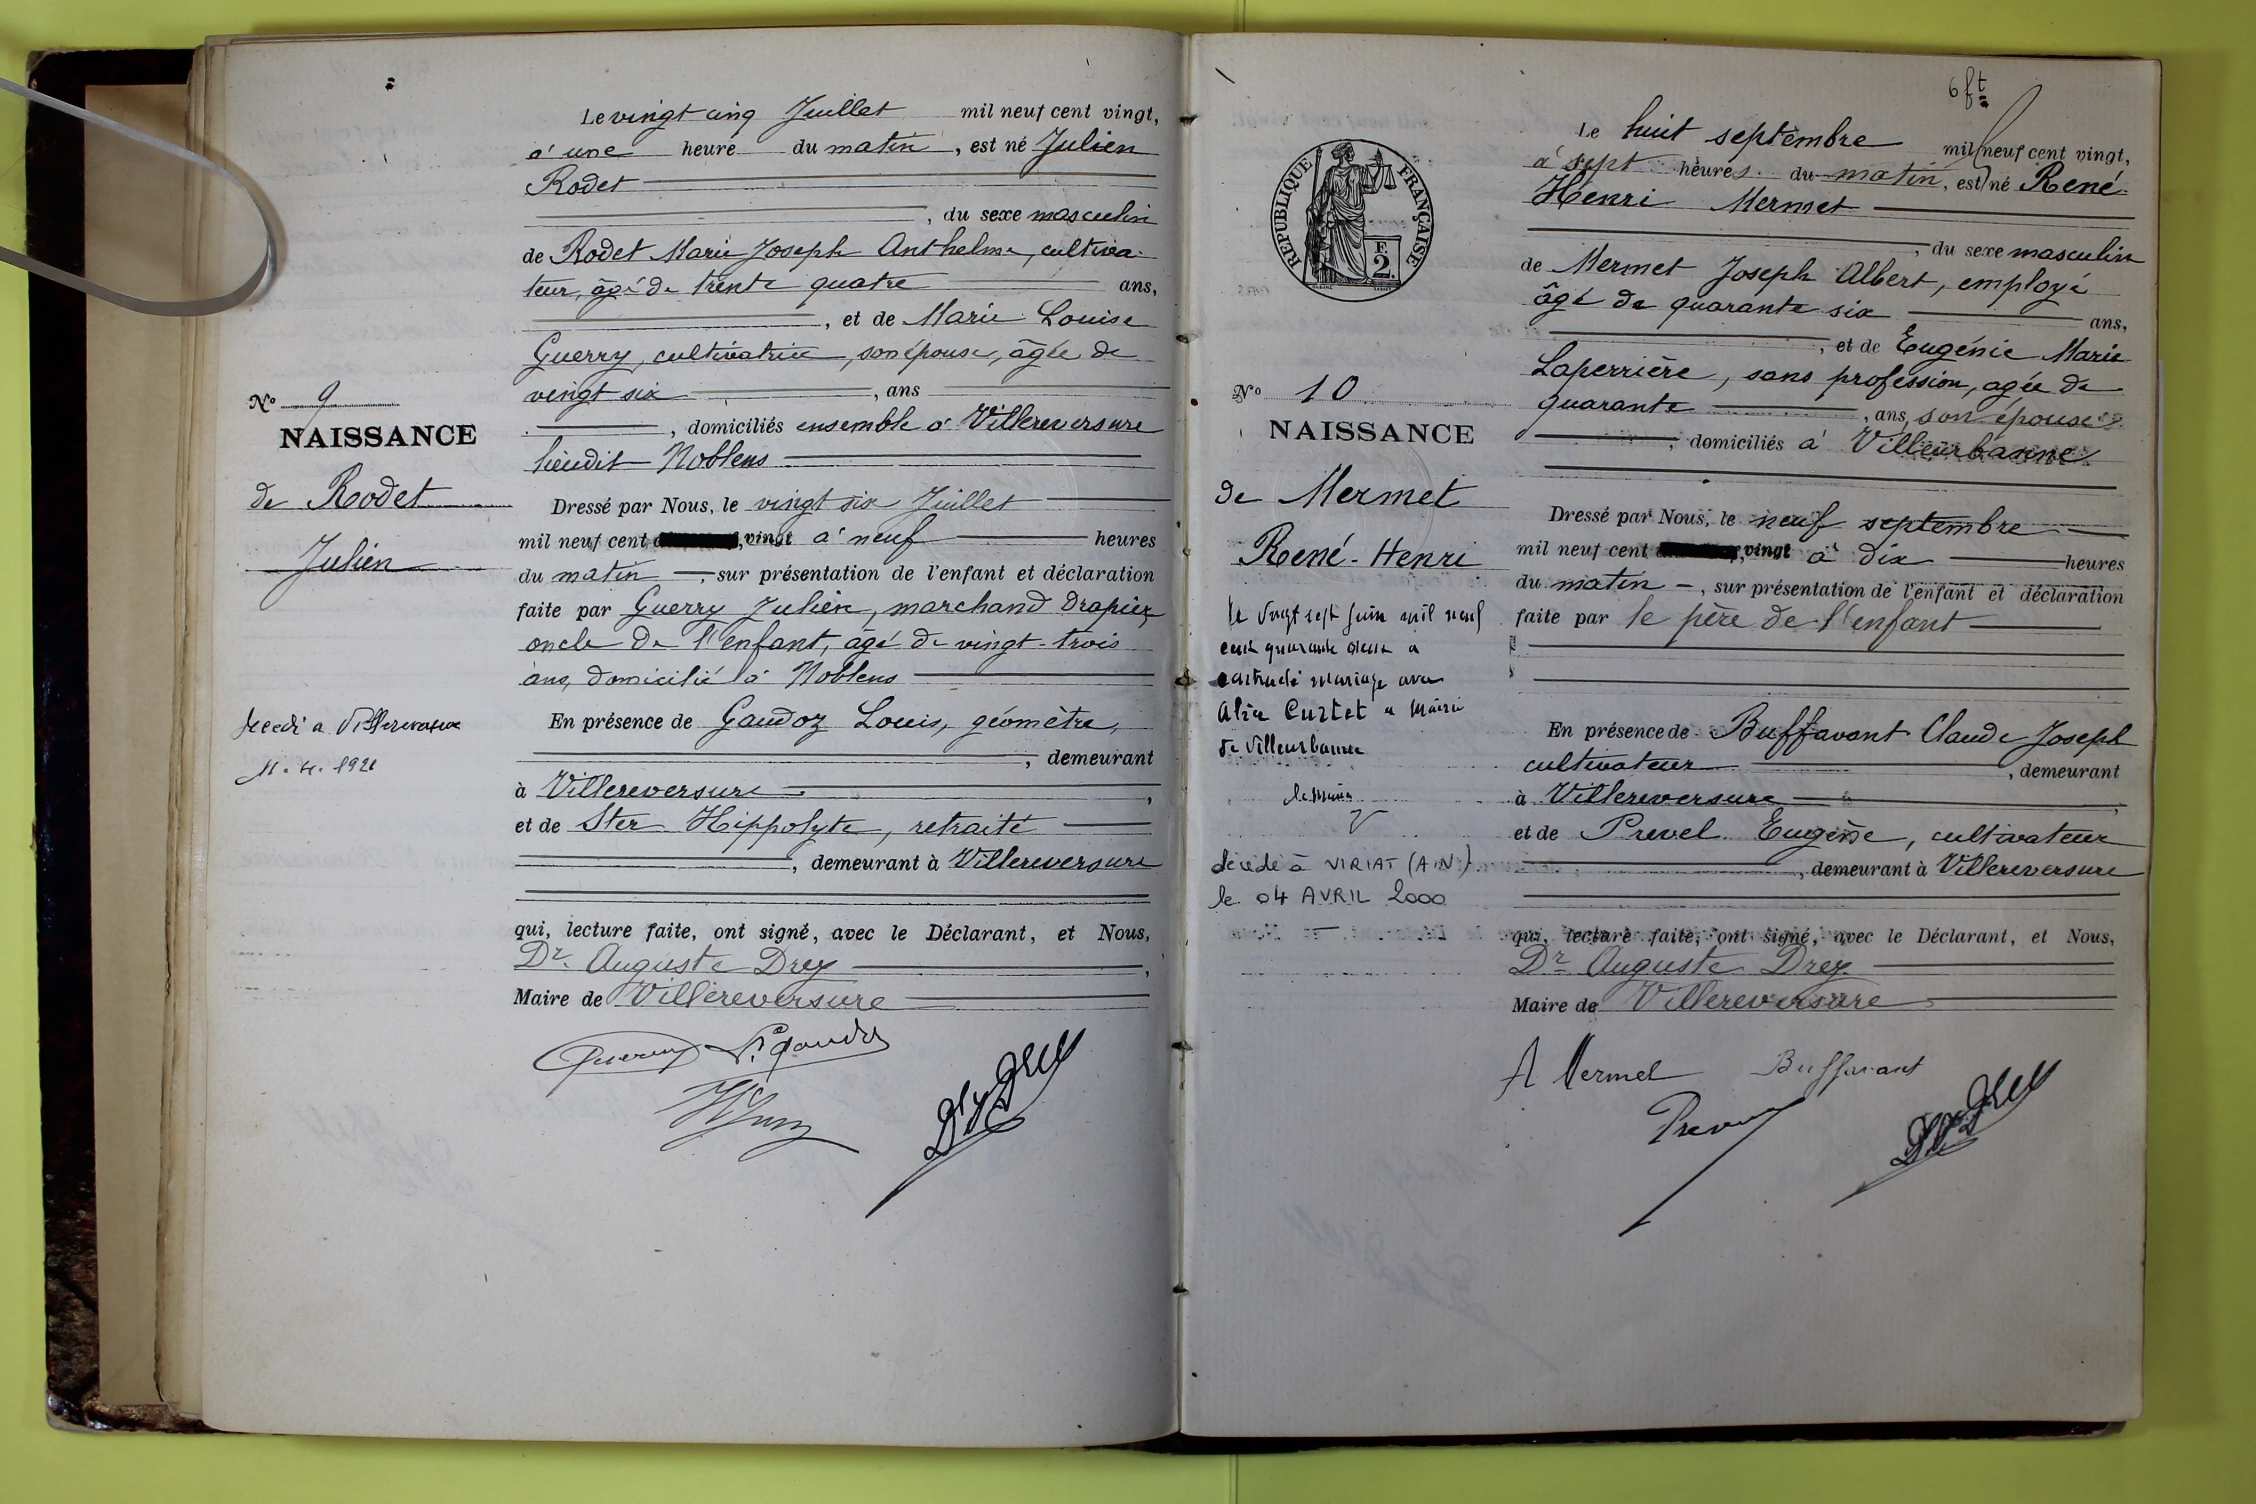 Le vingt cinq Juillet mil neuf cent vingt,
à une heure du matin, est né Julien
Rodet
, du sexe masculin
de Rodet Marie Joseph Anthelme, cultiva-
teur, âgé de trente quatre ans,
, et de Marie Louise
Guerry, cultivatrice, son épouse, âgée de
vingt six , ans
, domiciliés ensemble à Villereversure
lieudit Noblens
Dressé par Nous, le vingt six Juillet
mil neuf cent vingt à neuf heures
du matin, sur présentation de l'enfant et déclaration
faite par Guerry Julien, marchand drapier,
oncle de l'enfant, âgé de vingt-trois
ans, domicilié à Noblens
En présence de Gaudoz Louis, géomètre,
, demeurant
à Villereversure,
et de Ster Hippolyte, retraité
, demeurant à Villereversure
qui, lecture faite, ont signé, avec le Déclarant, et Nous,
Dr. Auguste Drey,
Maire de Villereversure
Nº 9
NAISSANCE
de Rodet
Julien
décédé à Villereversure
11.4.1921
6 ft
Le huit septembre mil neuf cent vingt,
à sept heures du matin, est né René
Henri Mermet
, du sexe masculin
de Mermet Joseph Albert, employé
âgé de quarante six ans,
, et de Eugénie Marie
Laperrière, sans profession, agée de
quarante , ans, son épouse
, domiciliés à Villeurbanne
Dressé par Nous, le neuf septembre
mil neuf cent vingt à dix heures
du matin, sur présentation de l'enfant et déclaration
faite par le père de l'enfant
En présence de Buffavant Claude Joseph
cultivateur , demeurant
à Villereversure,
et de Prevel Eugène, cultivateur
, demeurant à Villereversure
qui, lecture faite, ont signé, avec le Déclarant, et Nous,
Dr Auguste Drey
Maire de Villereversure
A Mermet Buffavant
RÉPUBLIQUE FRANÇAISE
F.
2.
Nº 10
NAISSANCE
de Mermet
René-Henri
le vingt sept juin mil neuf
cent quarante deux a
contracté mariage avec
Alice Curtet à mairie
de Villeurbanne
le maire
décédé à VIRIAT (AIN)
le 04 AVRIL 2000